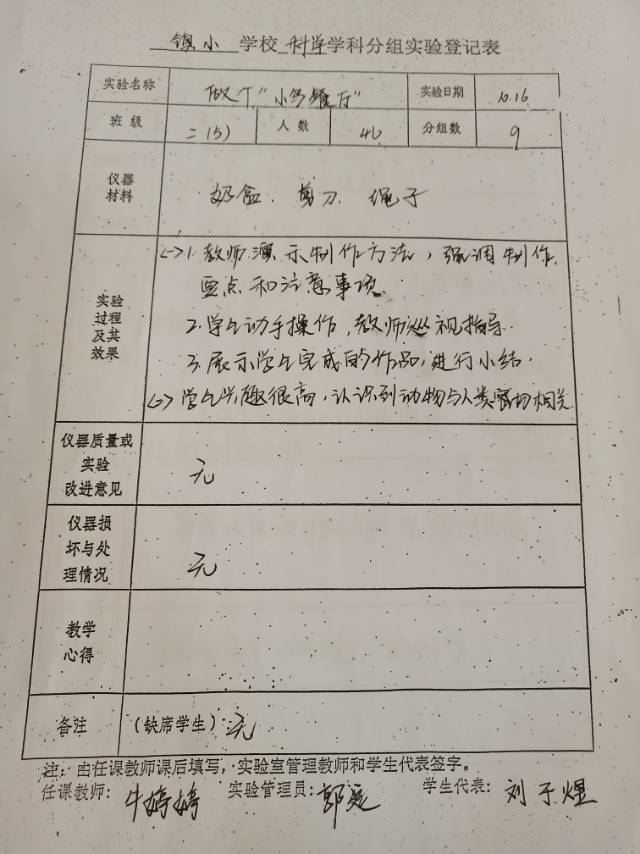 镇小 学校 科学 学科分组实验登记表
实验名称 做个“小鸟餐厅” 实验日期 10.16
班级 二(5) 人数 46 分组数 9
仪器
材料
奶盒、剪刀、绳子
实验
过程
及其
效果
<一>1.教师演示制作方法,强调制作
要点和注意事项.
2.学生动手操作,教师巡视指导.
3.展示学生完成的作品,进行小结.
<二>学生兴趣很高,认识到动物与人类密切相关
仪器质量或
实验
改进意见
无
仪器损
坏与处
理情况
无
教学
心得
备注 (缺席学生): 无
注:由任课教师课后填写,实验室管理教师和学生代表签字。
任课教师: 牛婷婷 实验管理员: 郭 学生代表: 刘于煜